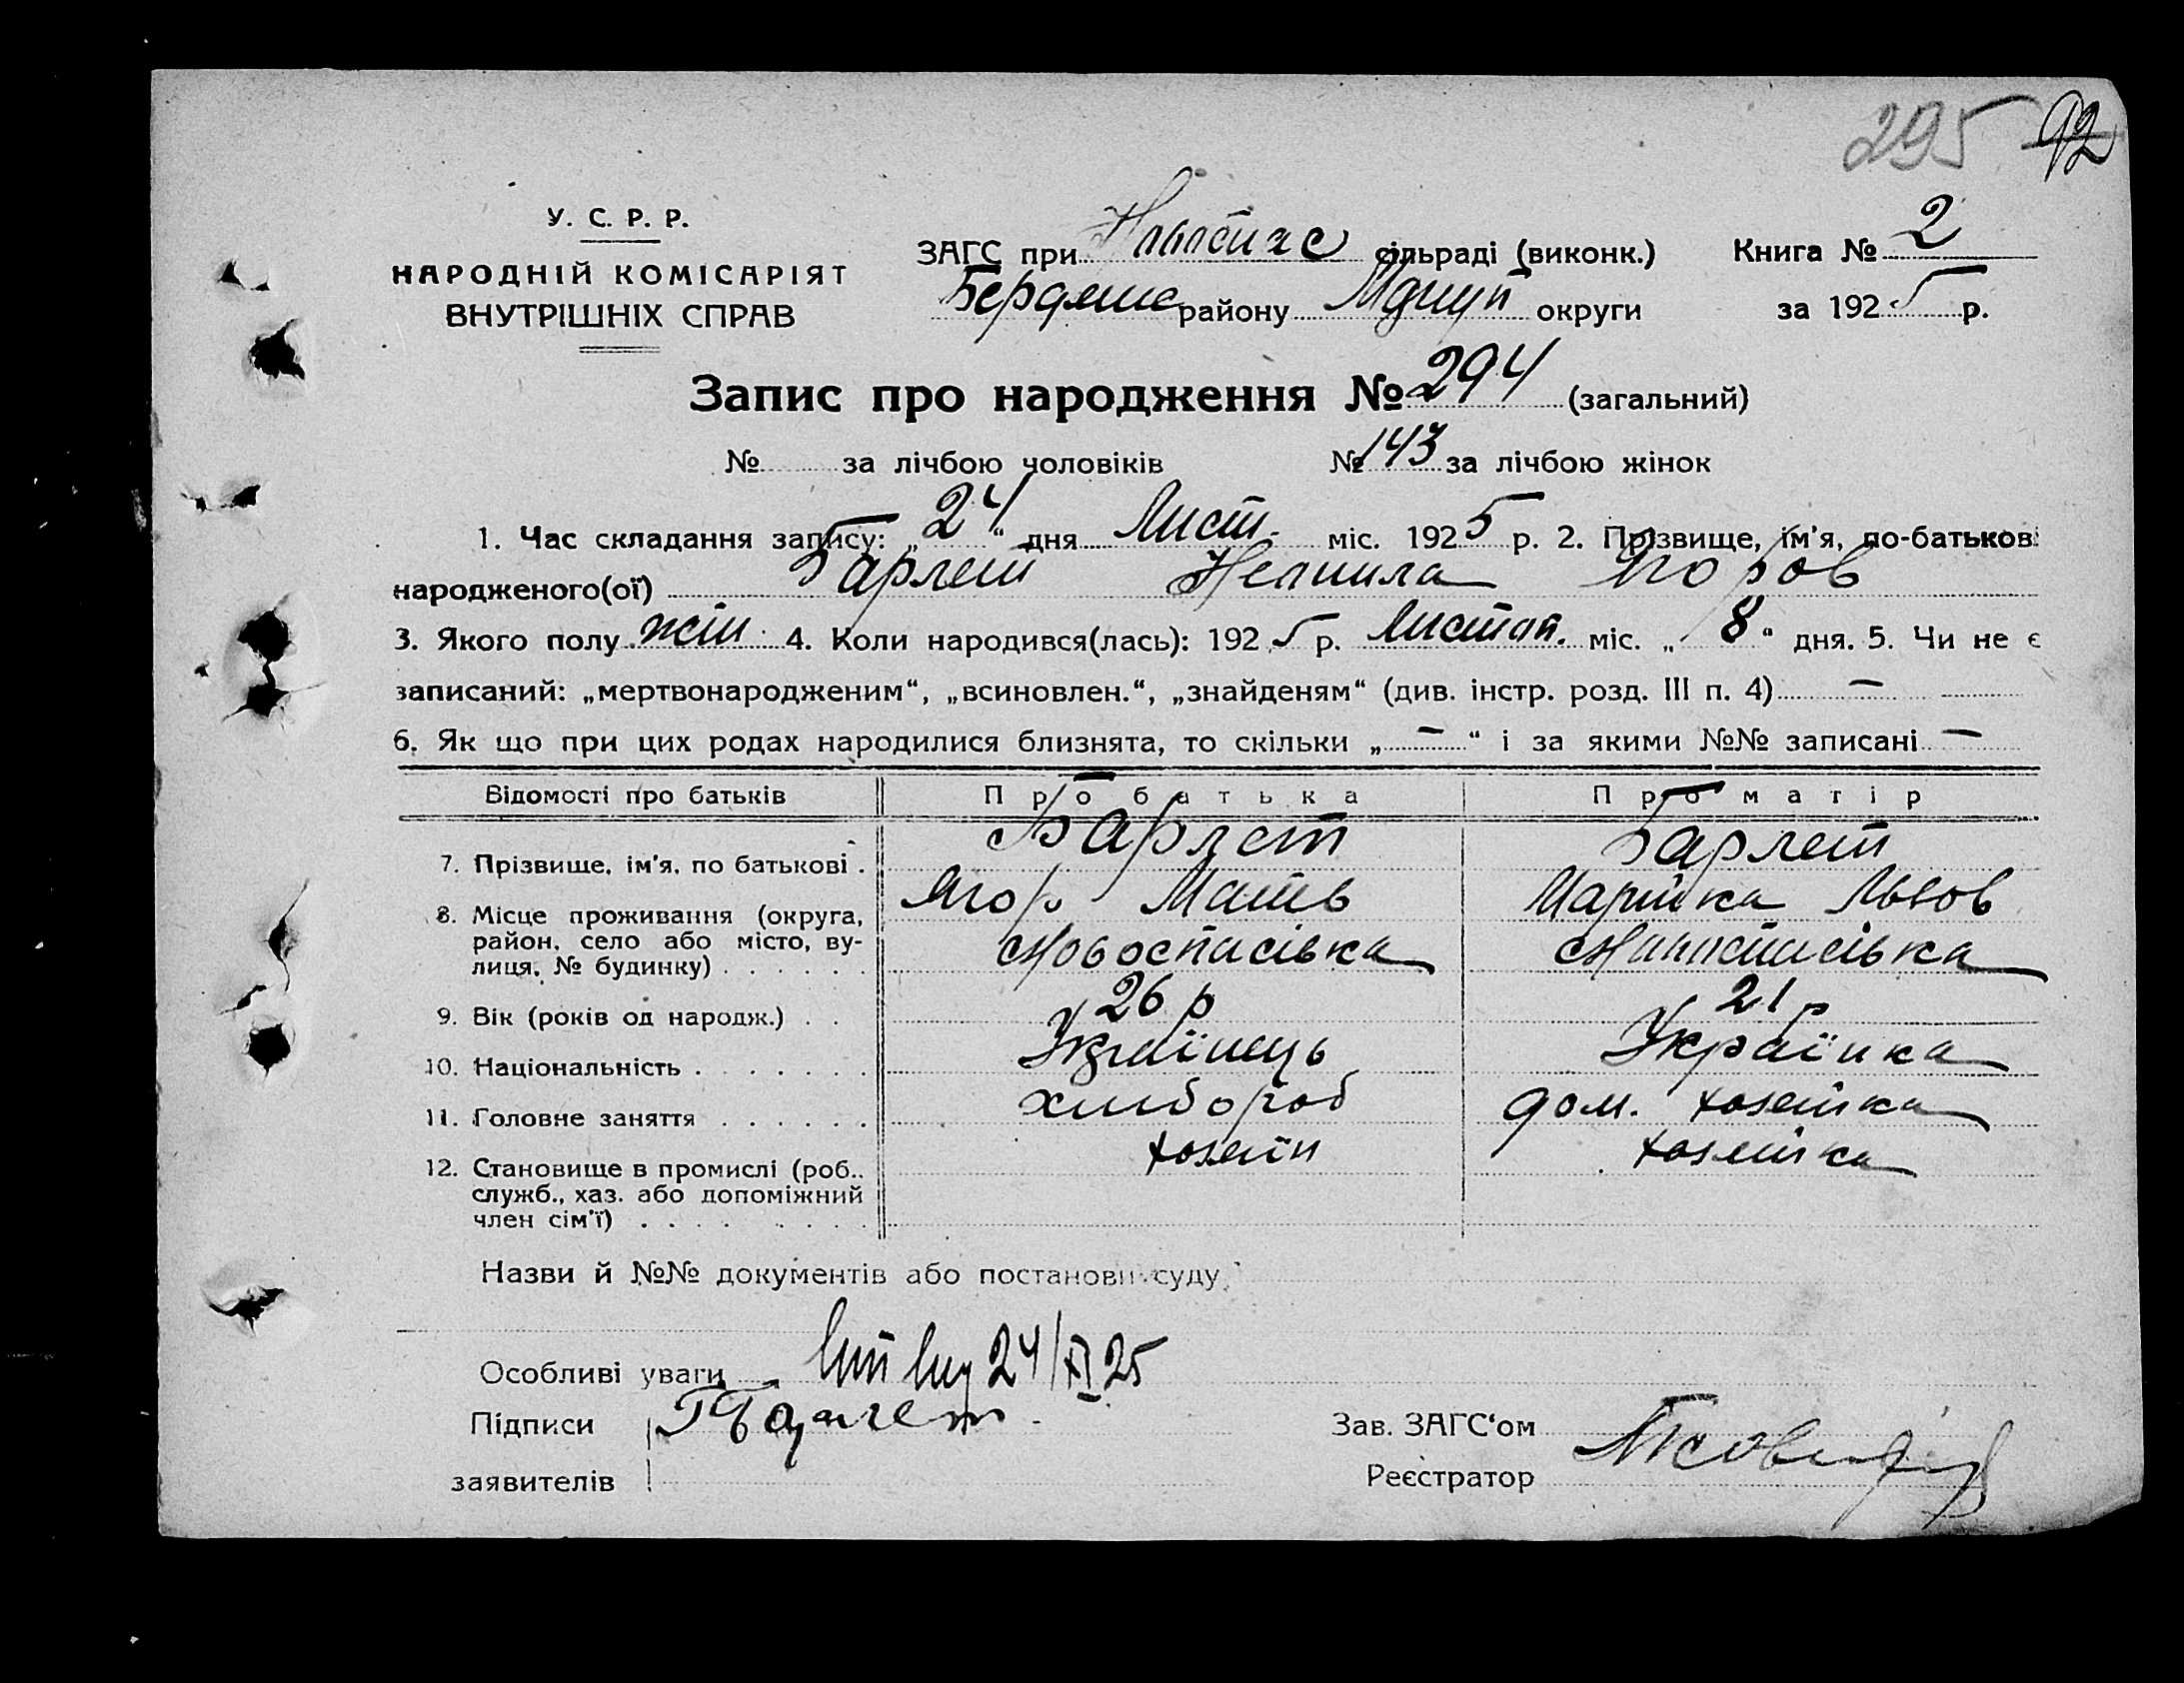 295 92
У. С. Р. Р.
НАРОДНІЙ КОМІСАРІЯТ
ВНУТРІШНІХ СПРАВ
ЗАГС при сільраді (виконк.)
району округи
Книга № 2
за 1925 р.
Запис про народження № 294 (загальний)
№ за лічбою чоловіків № 143 за лічбою жінок
1. Час складання запису: „24“ дня Лист. міс. 1925 р. 2. Прізвище, ім'я, по-батькові
народженого(ої) Барлет Ягоров
3. Якого полу жін. 4. Коли народився(лась): 1925 р. Листоп. міс. „8“ дня. 5. Чи не є
записаний: „мертвонародженим“, „всиновлен.“, „знайденям“ (див. інстр. розд. III п. 4) —
6. Як що при цих родах народилися близнята, то скільки „—“ і за якими №№ записані —
Відомості про батьків Про батька Про матір
7. Прізвище, ім'я, по батькові . Барлет Барлет
Ягор Матв Марійка Львов
8. Місце проживання (округа, район, село або місто, вулиця, № будинку) . . . . . . Новоспасівка
9. Вік (років од народж.) . . 26 р 21 р
10. Національність . . . . . . . Українець Українка
11. Головне заняття . . . . . . хлібороб дом. хозяйка
12. Становище в промислі (роб., служб., хаз. або допоміжний член сім'ї) . . . . . . . . хозяїн хозяйка
Назви й №№ документів або постанови суду
Особливі уваги 24/XI 25
Підписи Барлет
заявителів
Зав. ЗАГС‘ом
Реєстратор